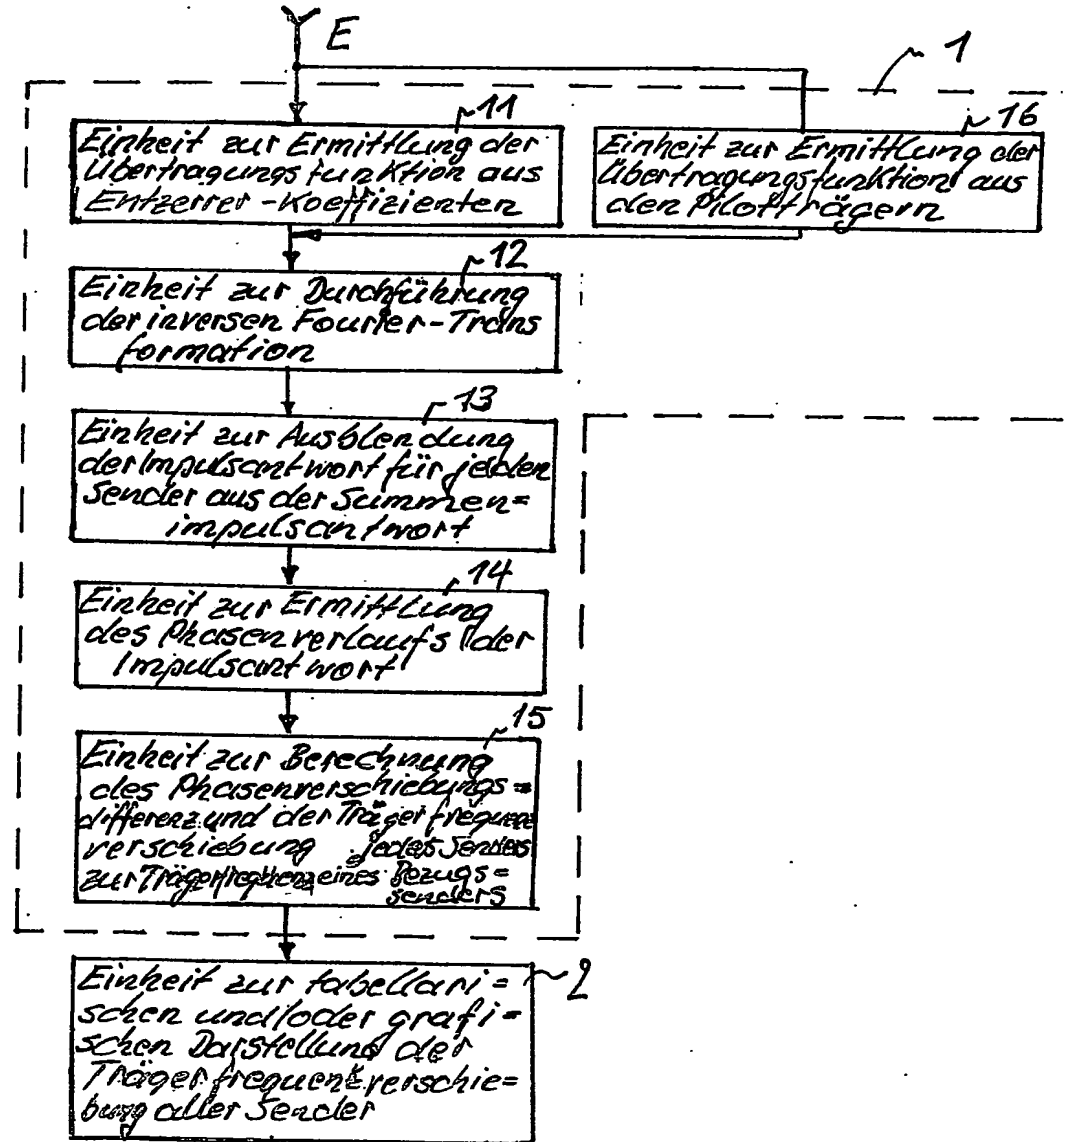 E
1
11
Einheit zur Ermittlung der
Übertragungsfunktion aus
Entzerrer-Koeffizienten
16
Einheit zur Ermittlung der
Übertragungsfunktion aus
den Pilotträgern
12
Einheit zur Durchführung
der inversen Fourier-Trans
formation
13
Einheit zur Ausblendung
der Impulsantwort für jeden
Sender aus der Summen=
impulsantwort
14
Einheit zur Ermittlung
des Phasenverlaufs der
Impulsantwort
15
Einheit zur Berechnung
des Phasenverschiebungs=
differenz und der Trägerfrequenz
verschiebung jedes Senders
zur Trägerfrequenz eines Bezugs=
senders
2
Einheit zur tabellari=
schen und/oder grafi=
schen Darstellung der
Trägerfrequenzverschie=
bung aller Sender